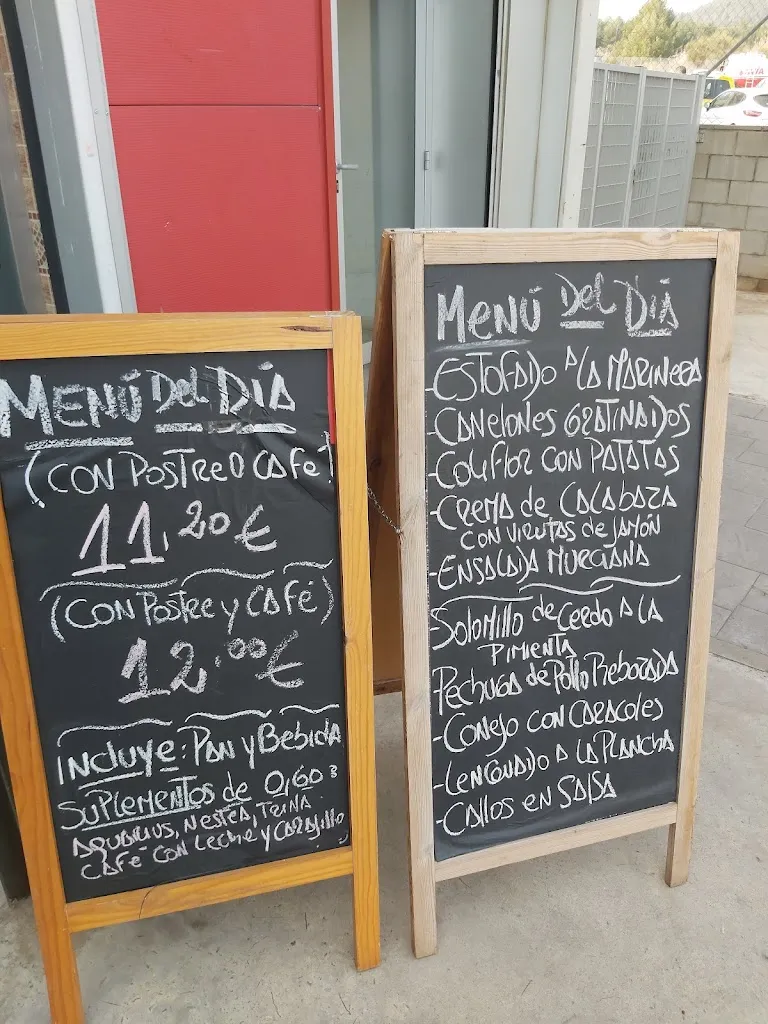 MENÚ DEL DÍA
(CON POSTRE O CAFÉ)
11,20 €
(CON POSTRE Y CAFÉ)
12,00 €
INCLUYE: PAN Y BEBIDA
SUPLEMENTOS DE 0,60 :
AQUARIUS, NESTEA, TRINA
CAFÉ CON LECHE Y CARAJILLO
MENÚ DEL DÍA
-ESTOFADO A LA MARINERA
-CANELONES GRATINADOS
-COLIFLOR CON PATATAS
-CREMA DE CALABAZA
CON VIRUTAS DE JAMÓN
-ENSALADA MURCIANA
-SOLOMILLO DE CERDO A LA
PIMIENTA
PECHUGA DE POLLO REBOZADA
-CONEJO CON CARACOLES
-LENGUADO A LA PLANCHA
-CALLOS EN SALSA